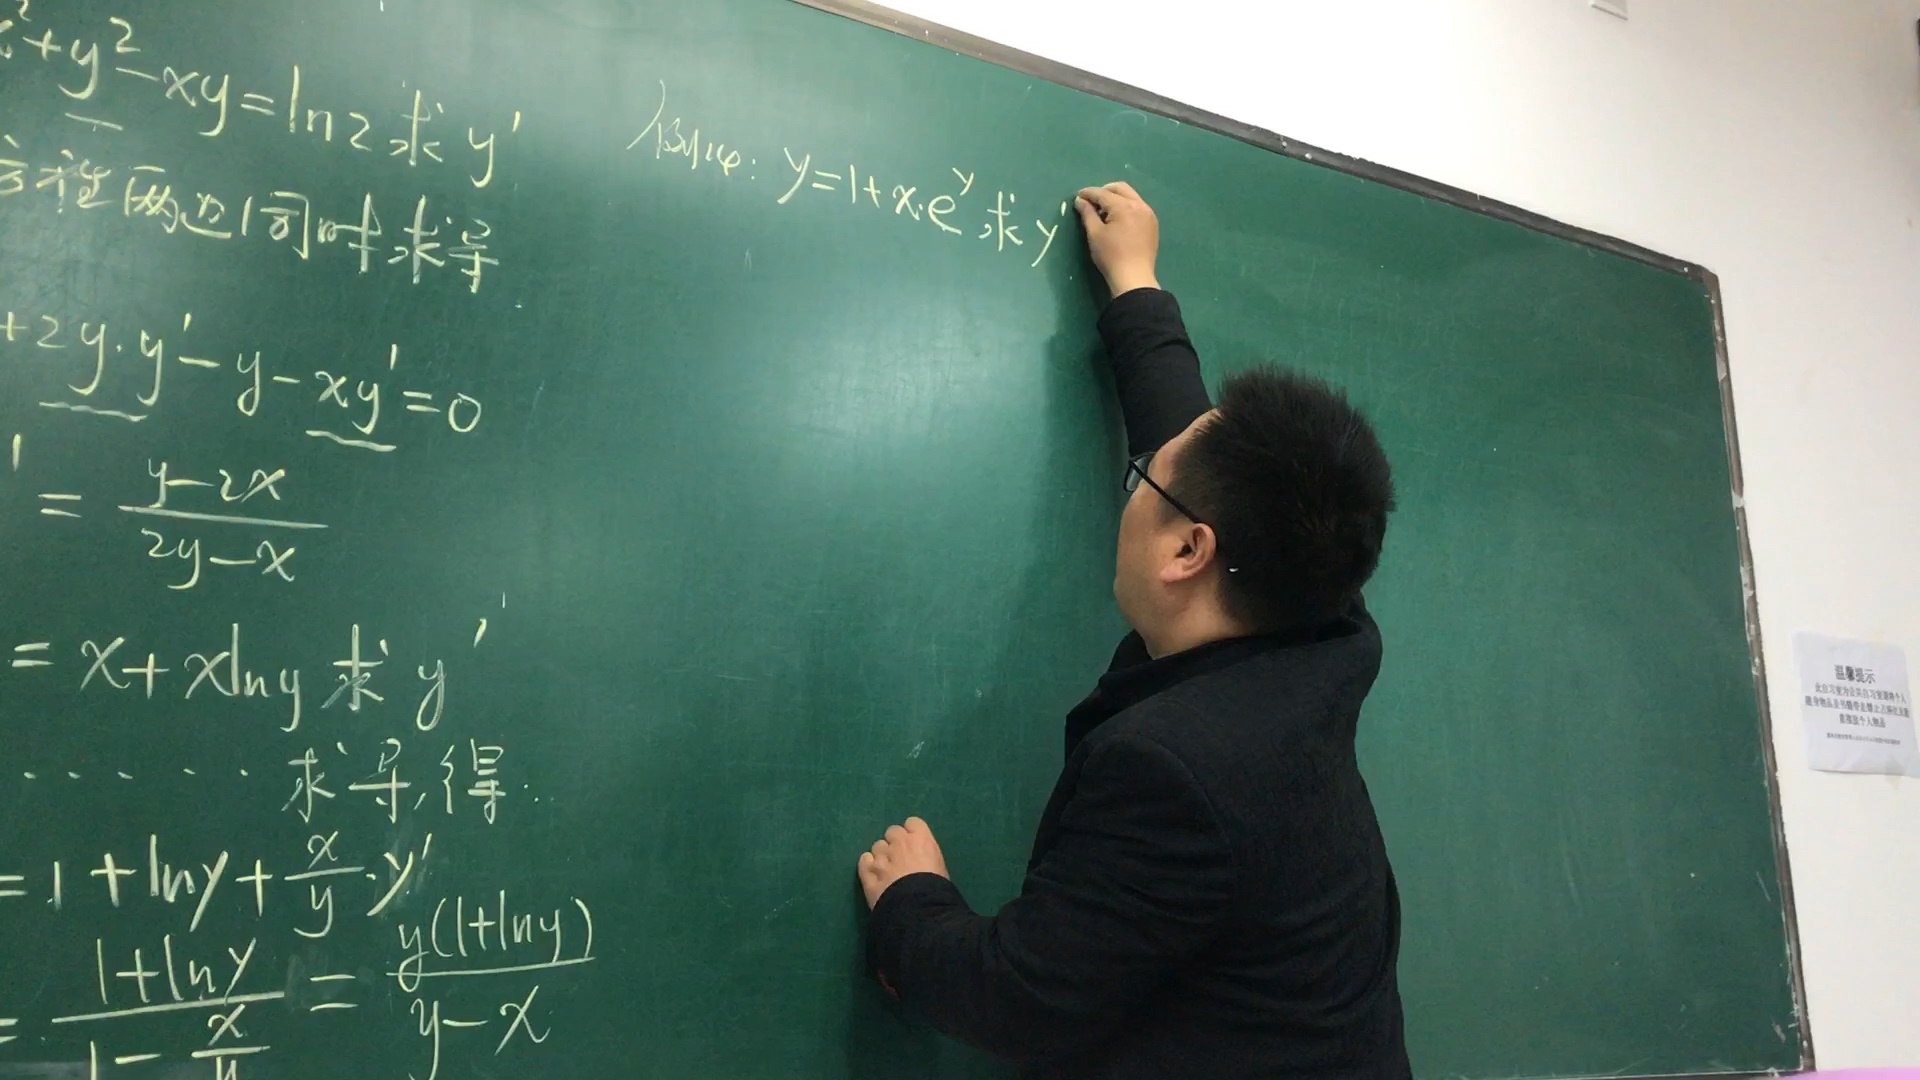 x²+y²-xy=ln2 求 y'
方程两边同时求导
+2y·y'-y-xy'=0
' = \frac{y-2x}{2y-x}
= x+xlny 求 y'
······ 求导,得:
=1+lny+\frac{x}{y}·y'
= \frac{1+lny}{1-\frac{x}{y}} = \frac{y(1+lny)}{y-x}
例14: y=1+x·e^y 求 y'
温馨提示